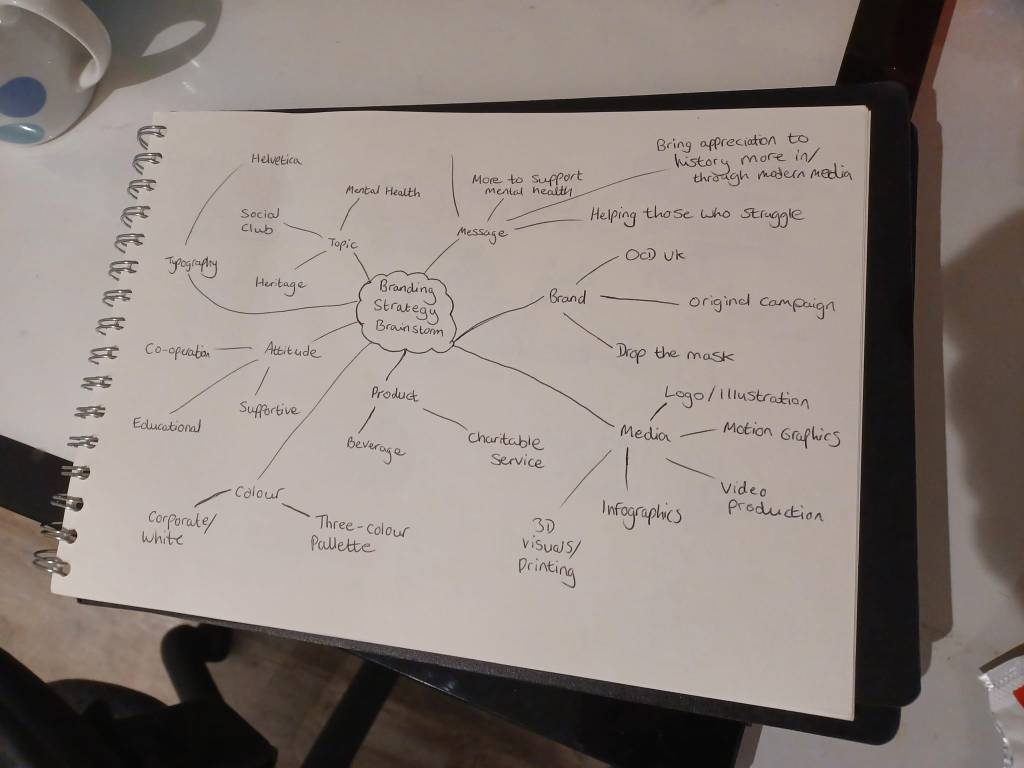 Branding
Strategy
Brainstorm
Typography
Helvetica
Topic
Social
Club
Mental Health
Heritage
Message
More to support
mental health
Bring appreciation to
history more in/
through modern media
Helping those who struggle
Brand
OCD UK
Original campaign
Drop the mask
Media
Logo/Illustration
Motion Graphics
Video
production
Infographics
3D
visuals/
printing
Product
Beverage
Charitable
Service
Colour
Corporate/
White
Three-colour
Pallette
Attitude
Co-operation
Educational
Supportive